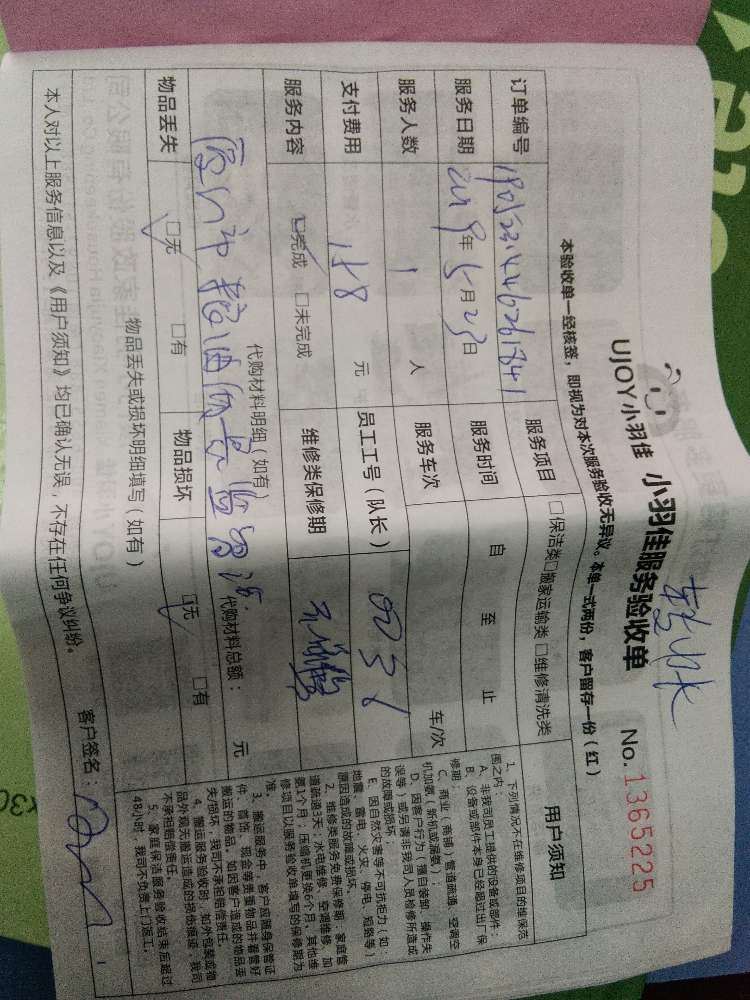 UJOY小羽佳 小羽佳服务验收单 No. 1365225
本验收单一经核签，即视为对本次服务验收无异议。本单一式两份，客户留存一份（红）
订单编号 服务项目 □保洁类□搬家运输类 □维修清洗类
服务日期 2019年5月23日 服务时间 自 至 止
服务人数 1 人 服务车次 车/次
支付费用 158 元 员工工号（队长）
服务内容 □完成 □未完成 维修类保修期
代购材料明细（如有） 代购材料总额： 元
物品丢失 □无 □有 物品损坏 □无 □有
物品丢失或损坏明细填写（如有）
本人对以上服务信息以及《用户须知》均已确认无误，不存在任何争议纠纷。
客户签名：
用户须知
1、下列情况不在维修项目的维保范
围之内：
A、非我司员工提供的设备或部件；
B、设备或部件本身已经超过出厂保
修期；
C、商业（商铺）管道疏通、空调空
机加氨（新机或漏氨）；
D、因客户行为（擅自装卸、操作失
误等）或另请非我司人员检修所造成
的故障或损坏；
E、因自然灾害等不可抗拒力（如：
地震、雷电、火灾、停电、短路等）
原因造成的故障或损坏。
2、维修类服务免费保修期：家庭管
道疏通3天；水电维修、空调维修、加
氨1个月；压缩机更换6个月，其他维
修项目以服务验收单填写的保修期为
准。
3、搬运服务中，客户应随身保管证
件、首饰、现金等贵重物品并看管好
搬运的物品。如因客户造成的物品丢
失/损坏，我司不承担赔偿责任。
4、搬运服务验收时，如外包装或物
品外观无搬运造成的损伤痕迹，我司
不承担赔偿责任。
5、家庭保洁服务验收结束后超过
48小时，我司不负责上门返工。